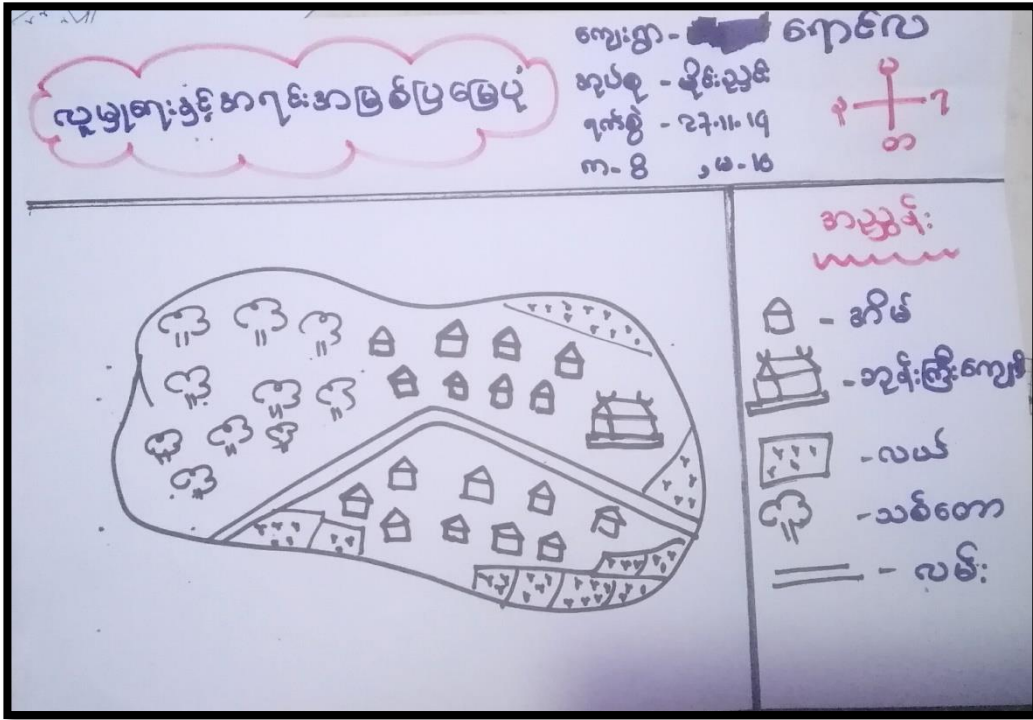 လူမှုရေးနှင့်အရင်းအမြစ်ပြမြေပုံ
ကျေးရွာ - ရောင်လ
အုပ်စု - မိုင်းညှင်း
ရက်စွဲ - 27.11.19
က - 8 , မ - 16
မ
န
ရ
တ
အညွှန်း
- အိမ်
- ဘုန်းကြီးကျောင်း
- လယ်
- သစ်တော
- လမ်း